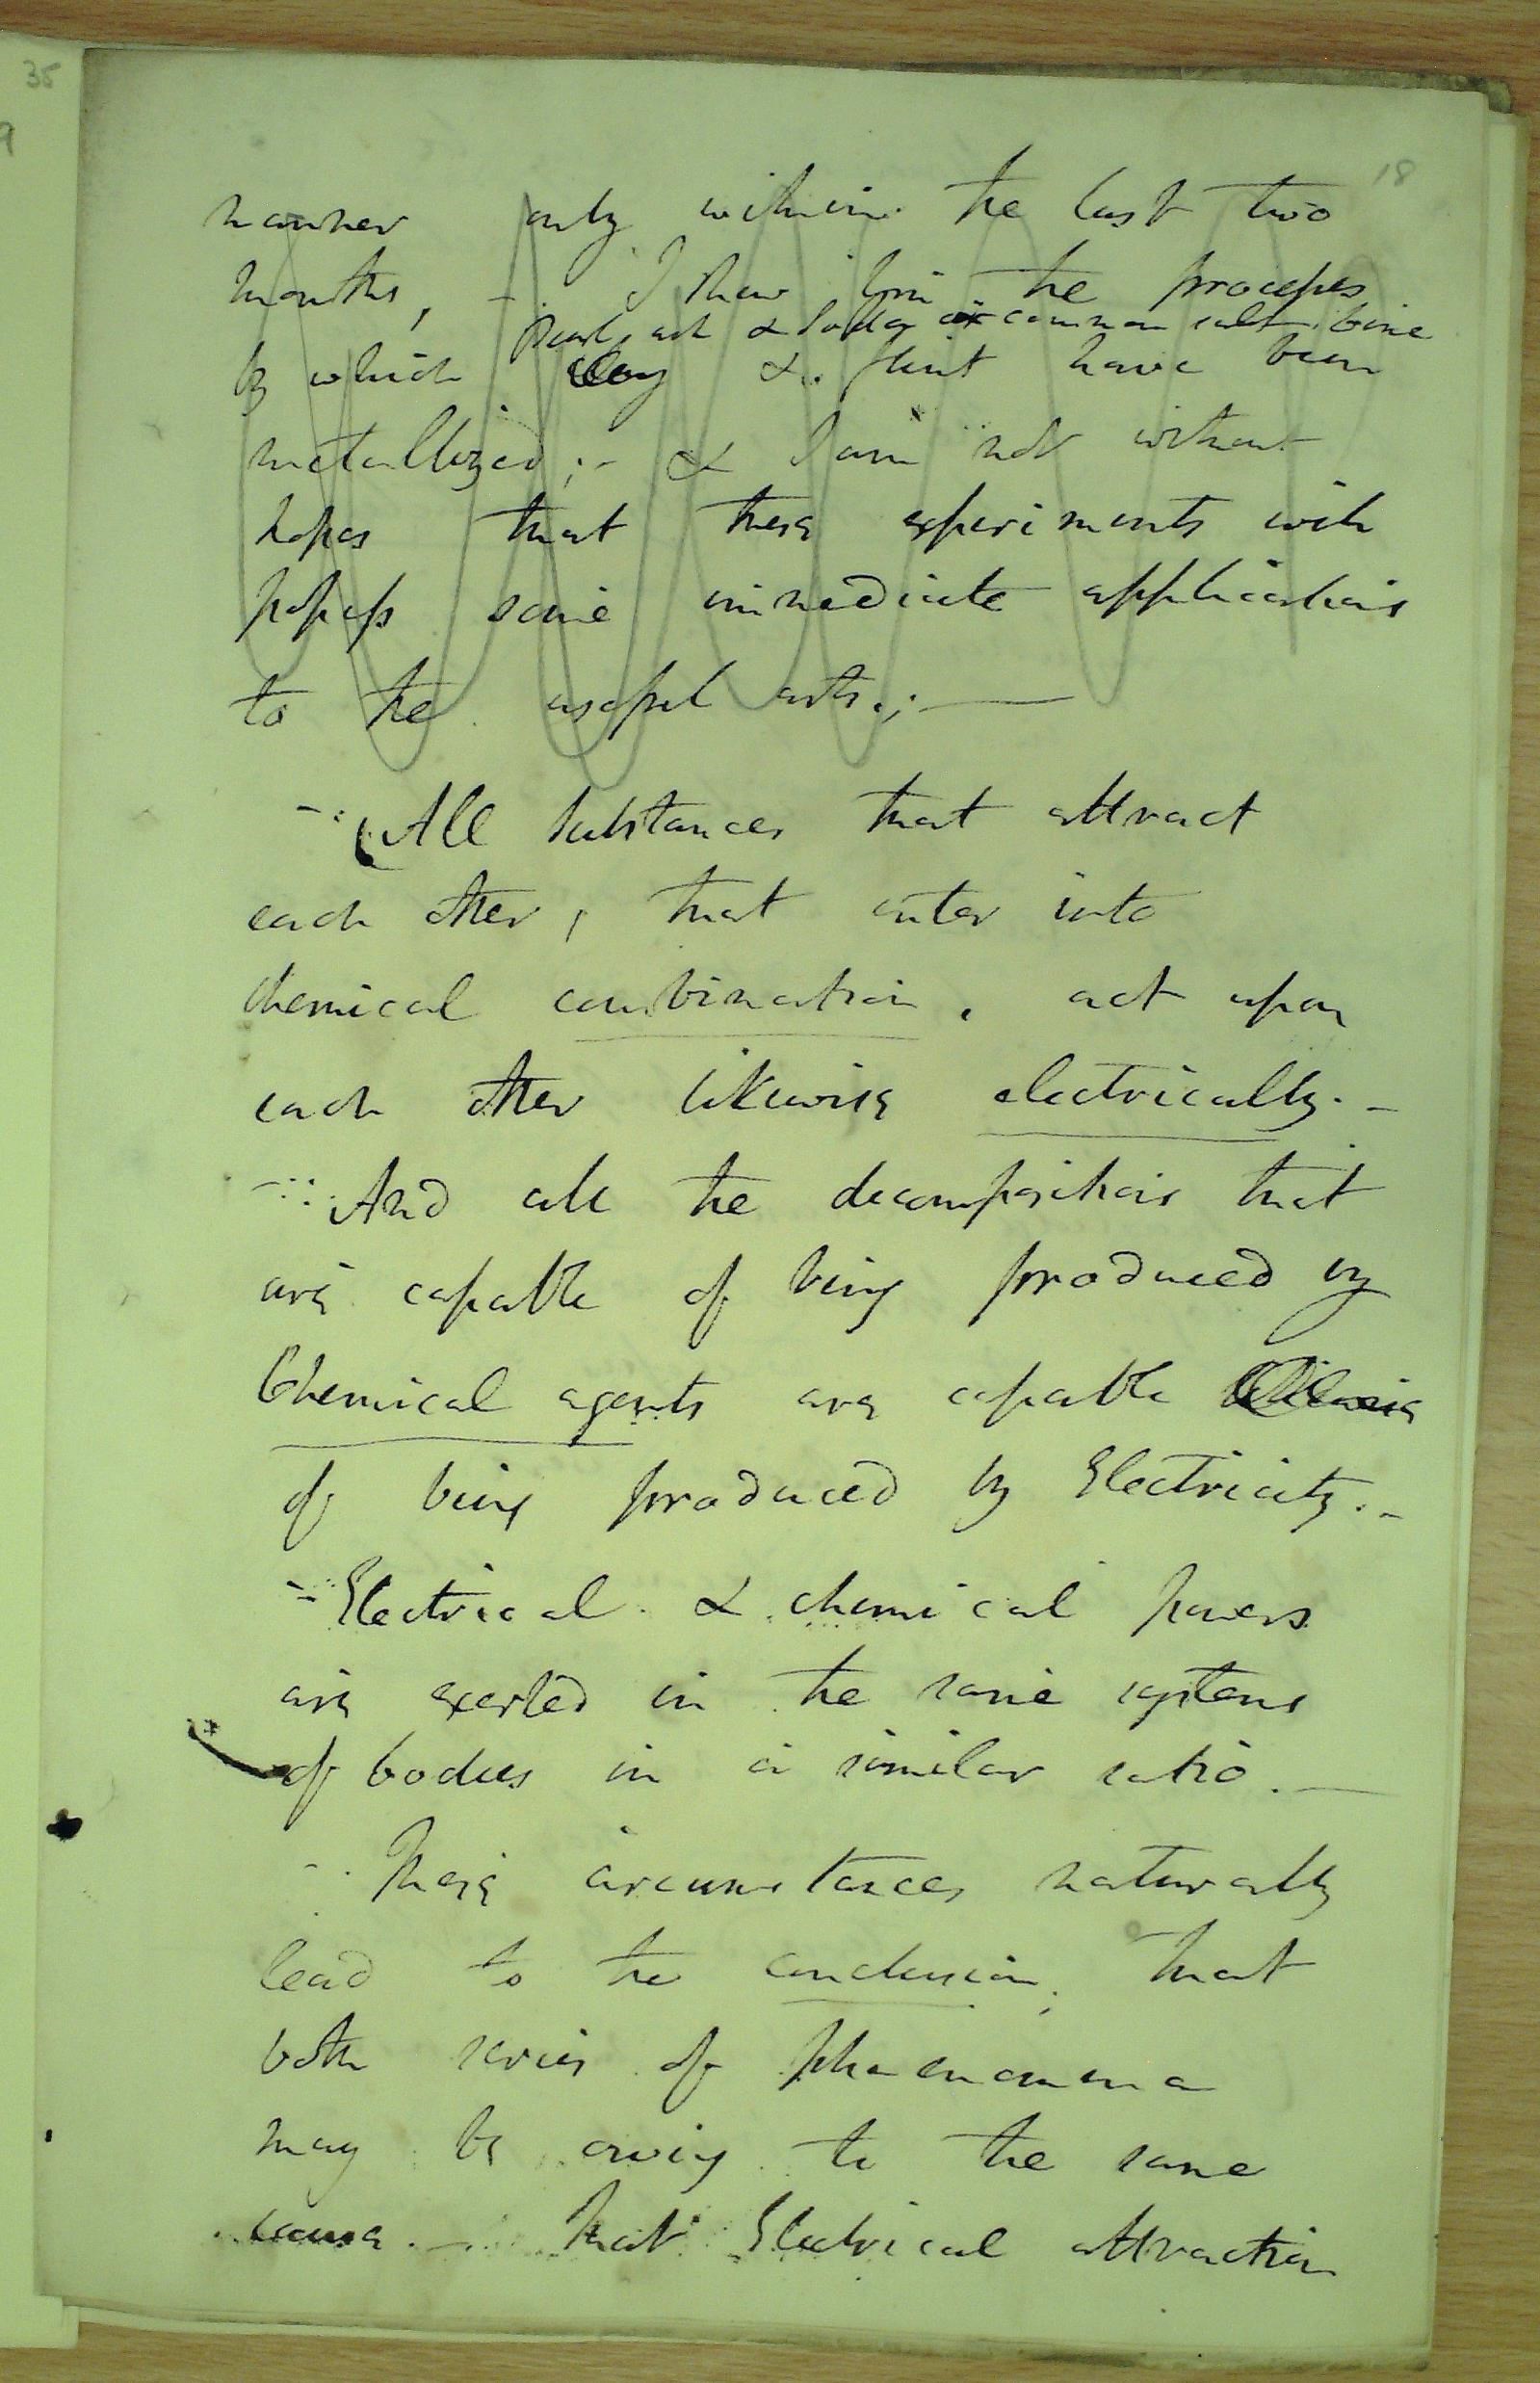 35
9
18
manner only within the last two
months, - I shew him the processes
Pearl ash & Soda or common salt lime
by which clay & flint have been
metallized; - & I am not without
hopes that these experiments will
possess some immediate applications
to the useful arts.; —
-: All substances that attract
each other, that enter into
chemical combination, act upon
each other likewise electrically. -
-:: And all the decompositions that
are capable of being produced by
Chemical agents are capable
of being produced by Electricity. -
-:: Electrical & chemical powers
are exerted in the same systems
of bodies in a similar ratio. —
-. These circumstances naturally
lead to the conclusion, that
both series of phaenomena
may be owing to the same
cause. - That Electrical attraction